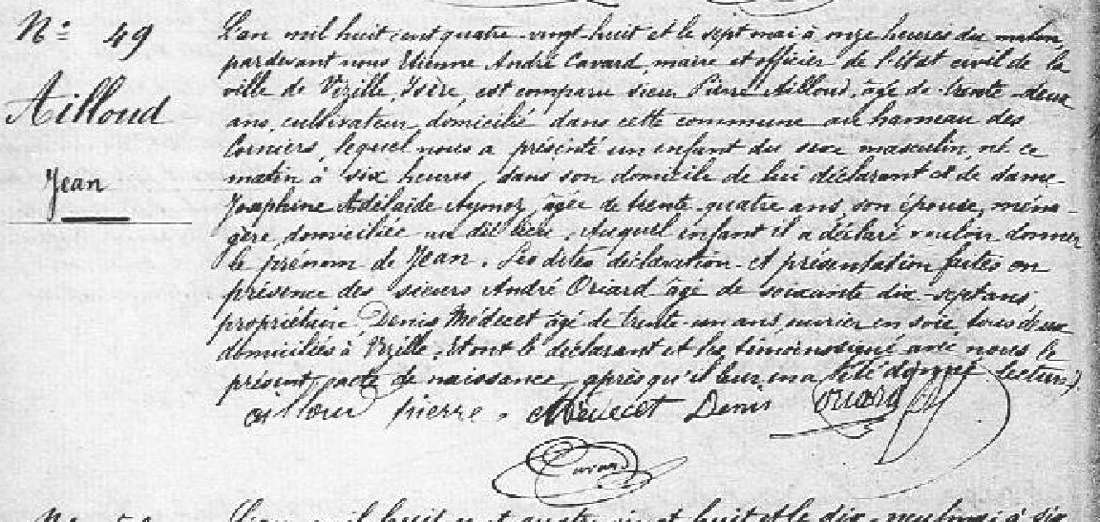 N° 49
Ailloud
Jean
L'an mil huit cent quatre-vingt-huit et le sept mai à onze heures du matin,
pardevant nous Etienne André Cavard, maire et officier de l'état civil de la
ville de Vizille, Isère, est comparu sieur Pierre Ailloud, âgé de trente-deux
ans, cultivateur, domicilié dans cette commune au hameau des
Corniers, lequel nous a présenté un enfant du sexe masculin, né ce
matin à six heures, dans son domicile de lui déclarant et de dame
Joséphine Adelaïde Aymoz, âgée de trente-quatre ans, son épouse, ména-
gère, domiciliée au dit lieu. Auquel enfant il a déclaré vouloir donner
le prénom de Jean. Les dites déclaration et présentation faites en
présence des sieurs André Oriard âgé de soixante dix-sept ans,
propriétaire, Denis Médecet âgé de trente-un ans, ouvrier en soie, tous deux
domiciliés à Vizille. Et ont le déclarant et les témoins signé avec nous le
présent acte de naissance, après qu'il leur en a été donné lecture.
ailloud pierre. Médecet Denis Oriard
Cavard
L'an mil huit cent quatre-vingt huit et le dix